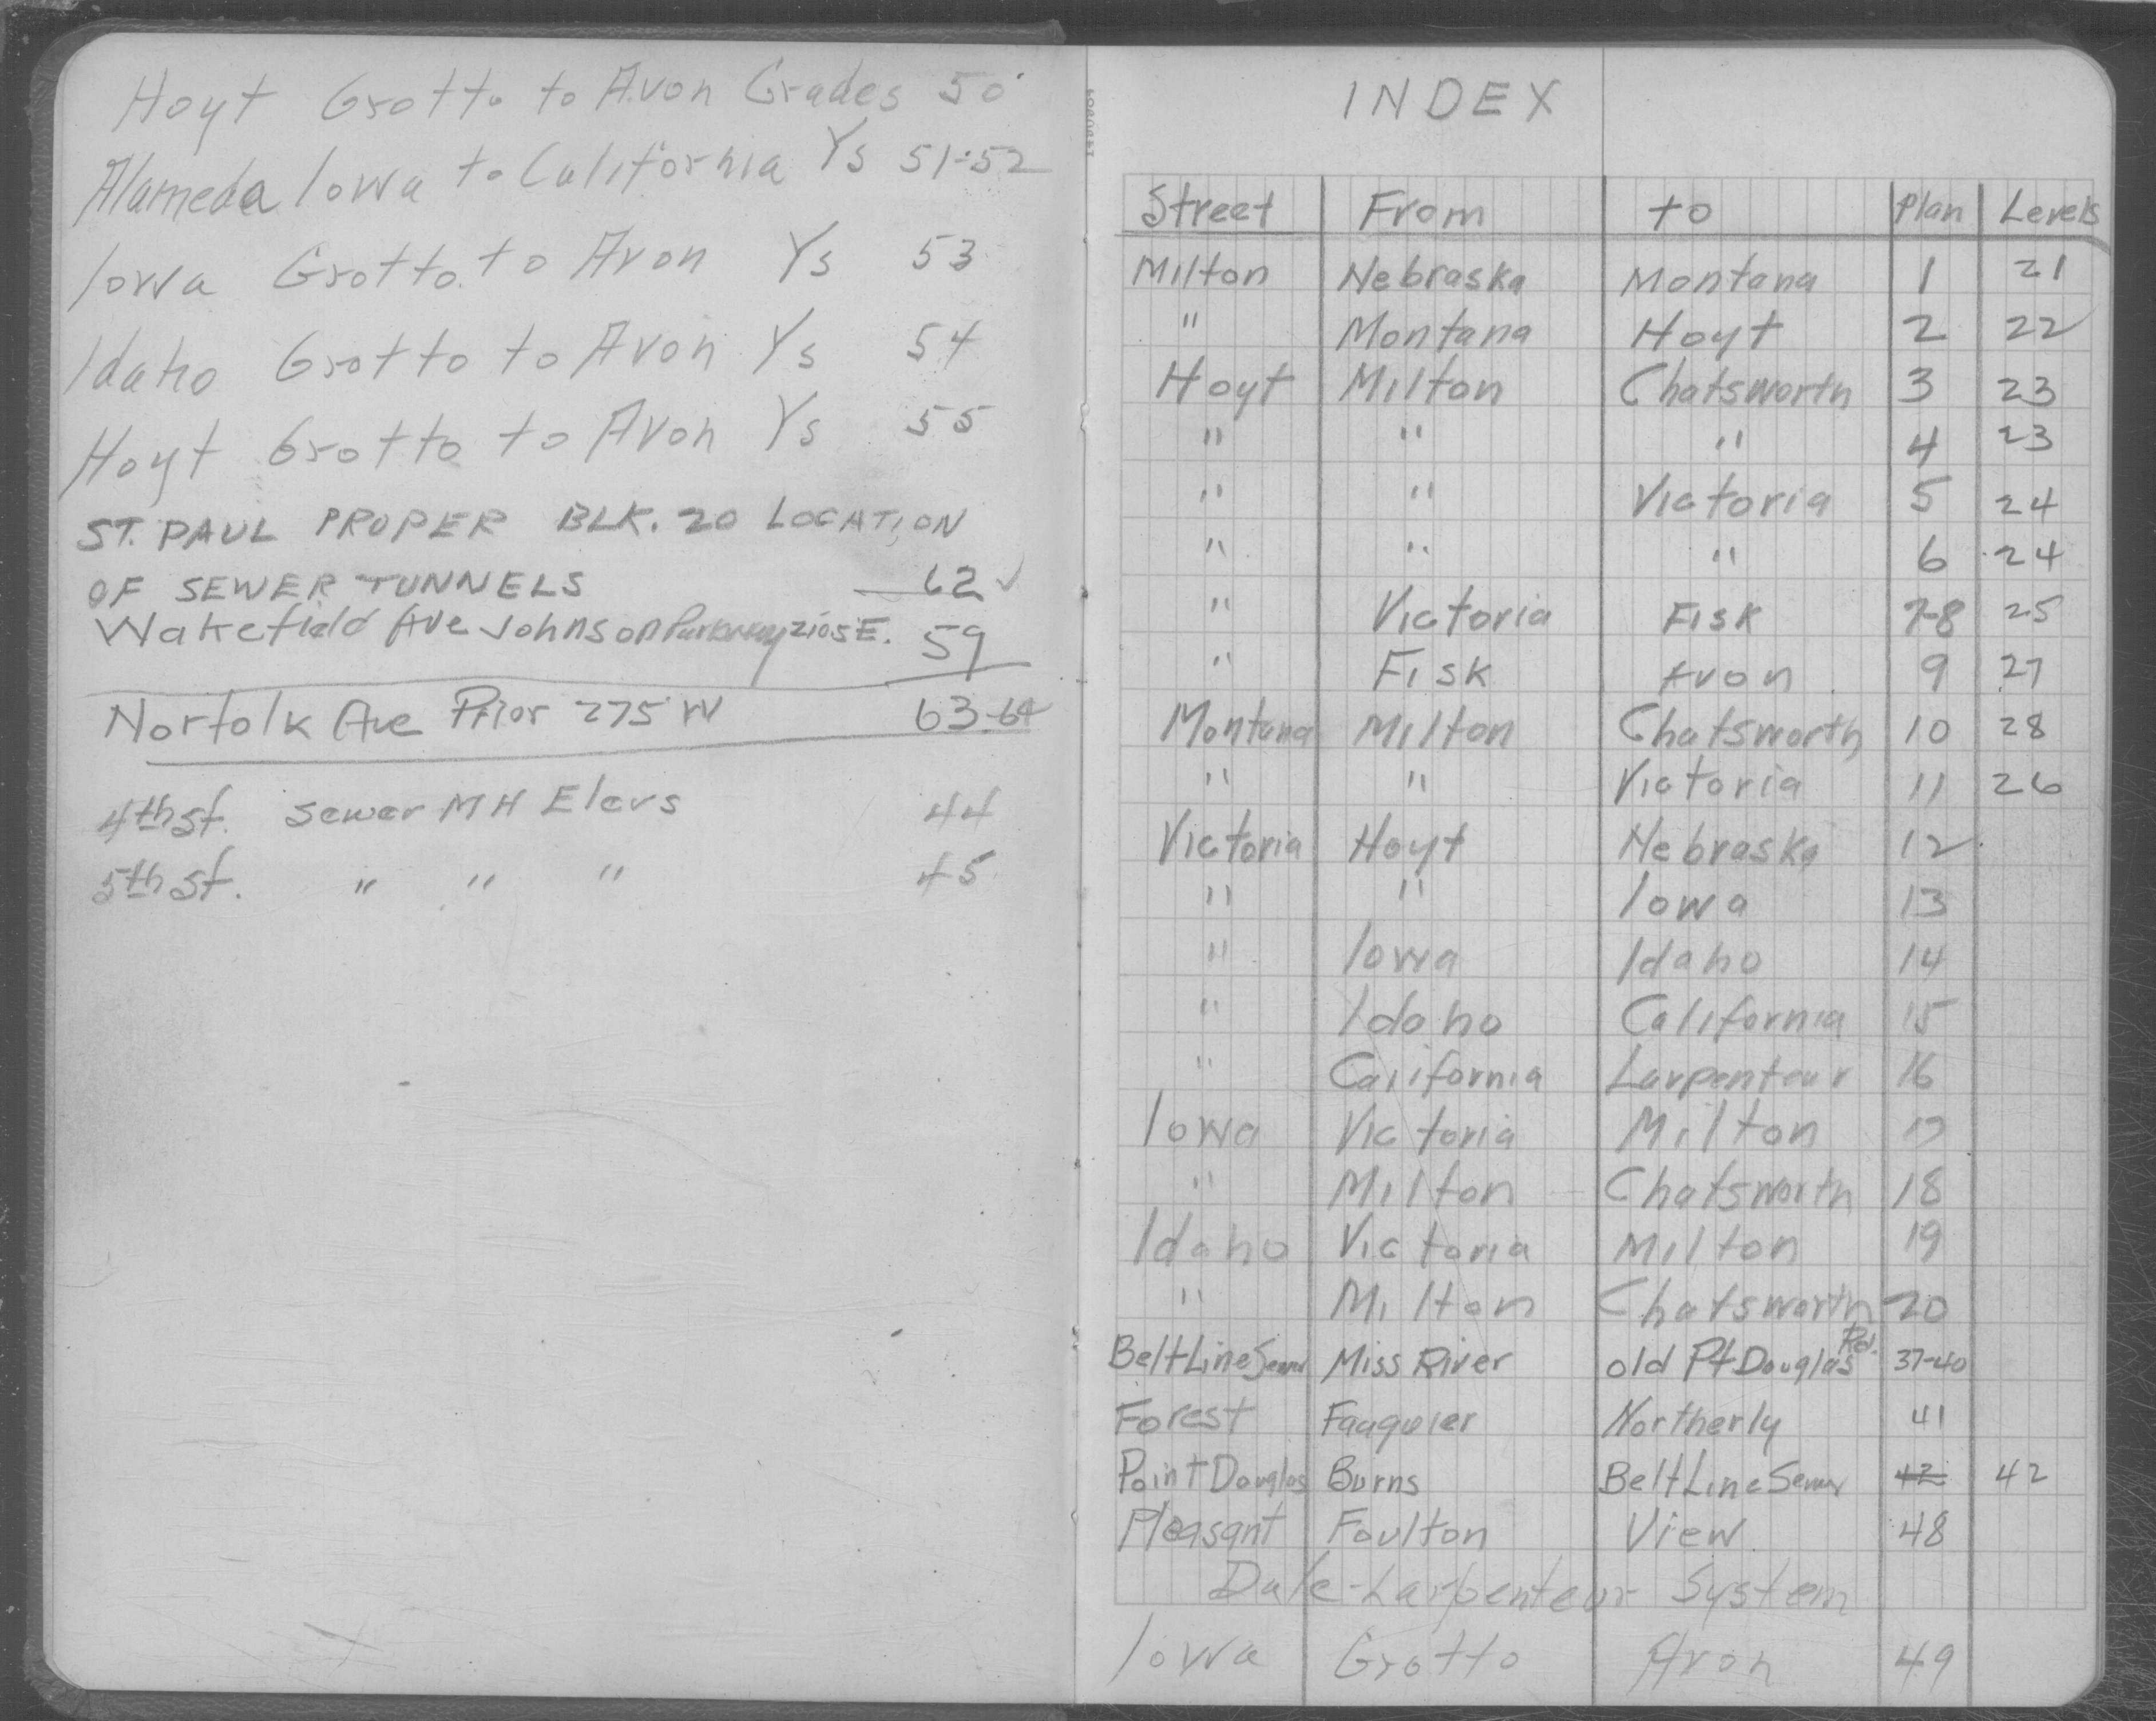 Hoyt Grotto to Avon Grades 50
Alameda Iowa to California Ys 51-52
Iowa Grotto to Avon Ys 53
Idaho Grotto to Avon Ys 54
Hoyt Grotto to Avon Ys 55
ST. PAUL PROPER BLK. 20 LOCATION
OF SEWER TUNNELS 62 ✓
Wakefield Ave Johnson Parkway 210's E. 59
Norfolk Ave Prior 275' W 63-64
4th St. Sewer MH Elevs 44
5th St. " " " 45
INDEX
Street From to Plan Levels
Milton Nebraska Montana 1 21
" Montana Hoyt 2 22
Hoyt Milton Chatsworth 3 23
" " " 4 23
" " Victoria 5 24
" " " 6 24
" Victoria Fisk 7-8 25
" Fisk Avon 9 27
Montana Milton Chatsworth 10 28
" " Victoria 11 26
Victoria Hoyt Nebraska 12
" " Iowa 13
" Iowa Idaho 14
" Idaho California 15
" California Larpenteur 16
Iowa Victoria Milton 17
" Milton Chatsworth 18
Idaho Victoria Milton 19
" Milton Chatsworth 20
Belt Line Sewer Miss River old Pt Douglas Rd. 37-40
Forest Fauquier Northerly 41
Point Douglas Burns Belt Line Sewer 42 42
Pleasant Foulton View 48
Dale-Larpenteur System
Iowa Grotto Avon 49